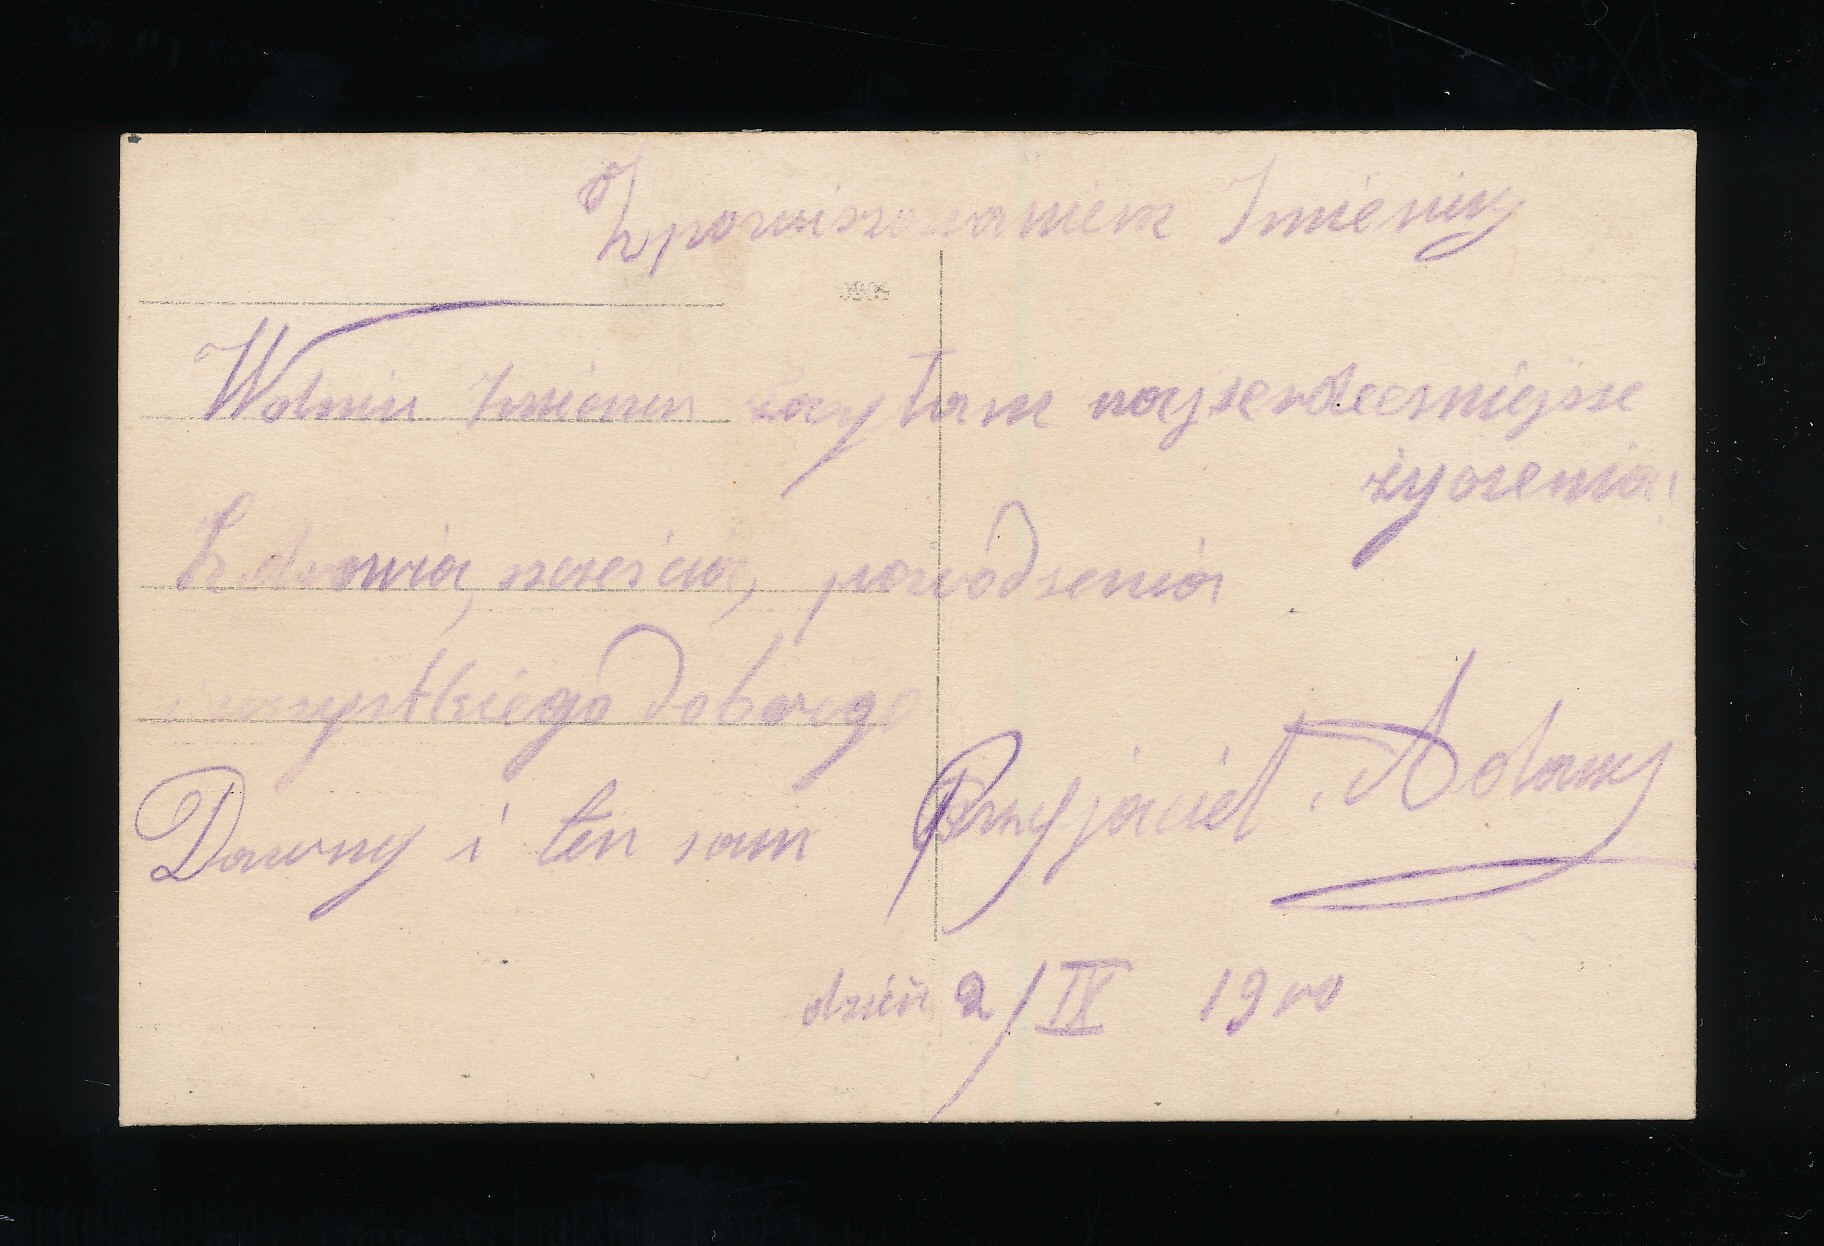 Z powiszowaniem Imieniny
W dniu Imienin zasyłam najserdeczniejsze
życzenia
Zdrowia, szcześcia, powódzenia
i wszystkiego dobrego
Dawny i ten sam Przyjaciel Adamy
dzień 2/IX 19